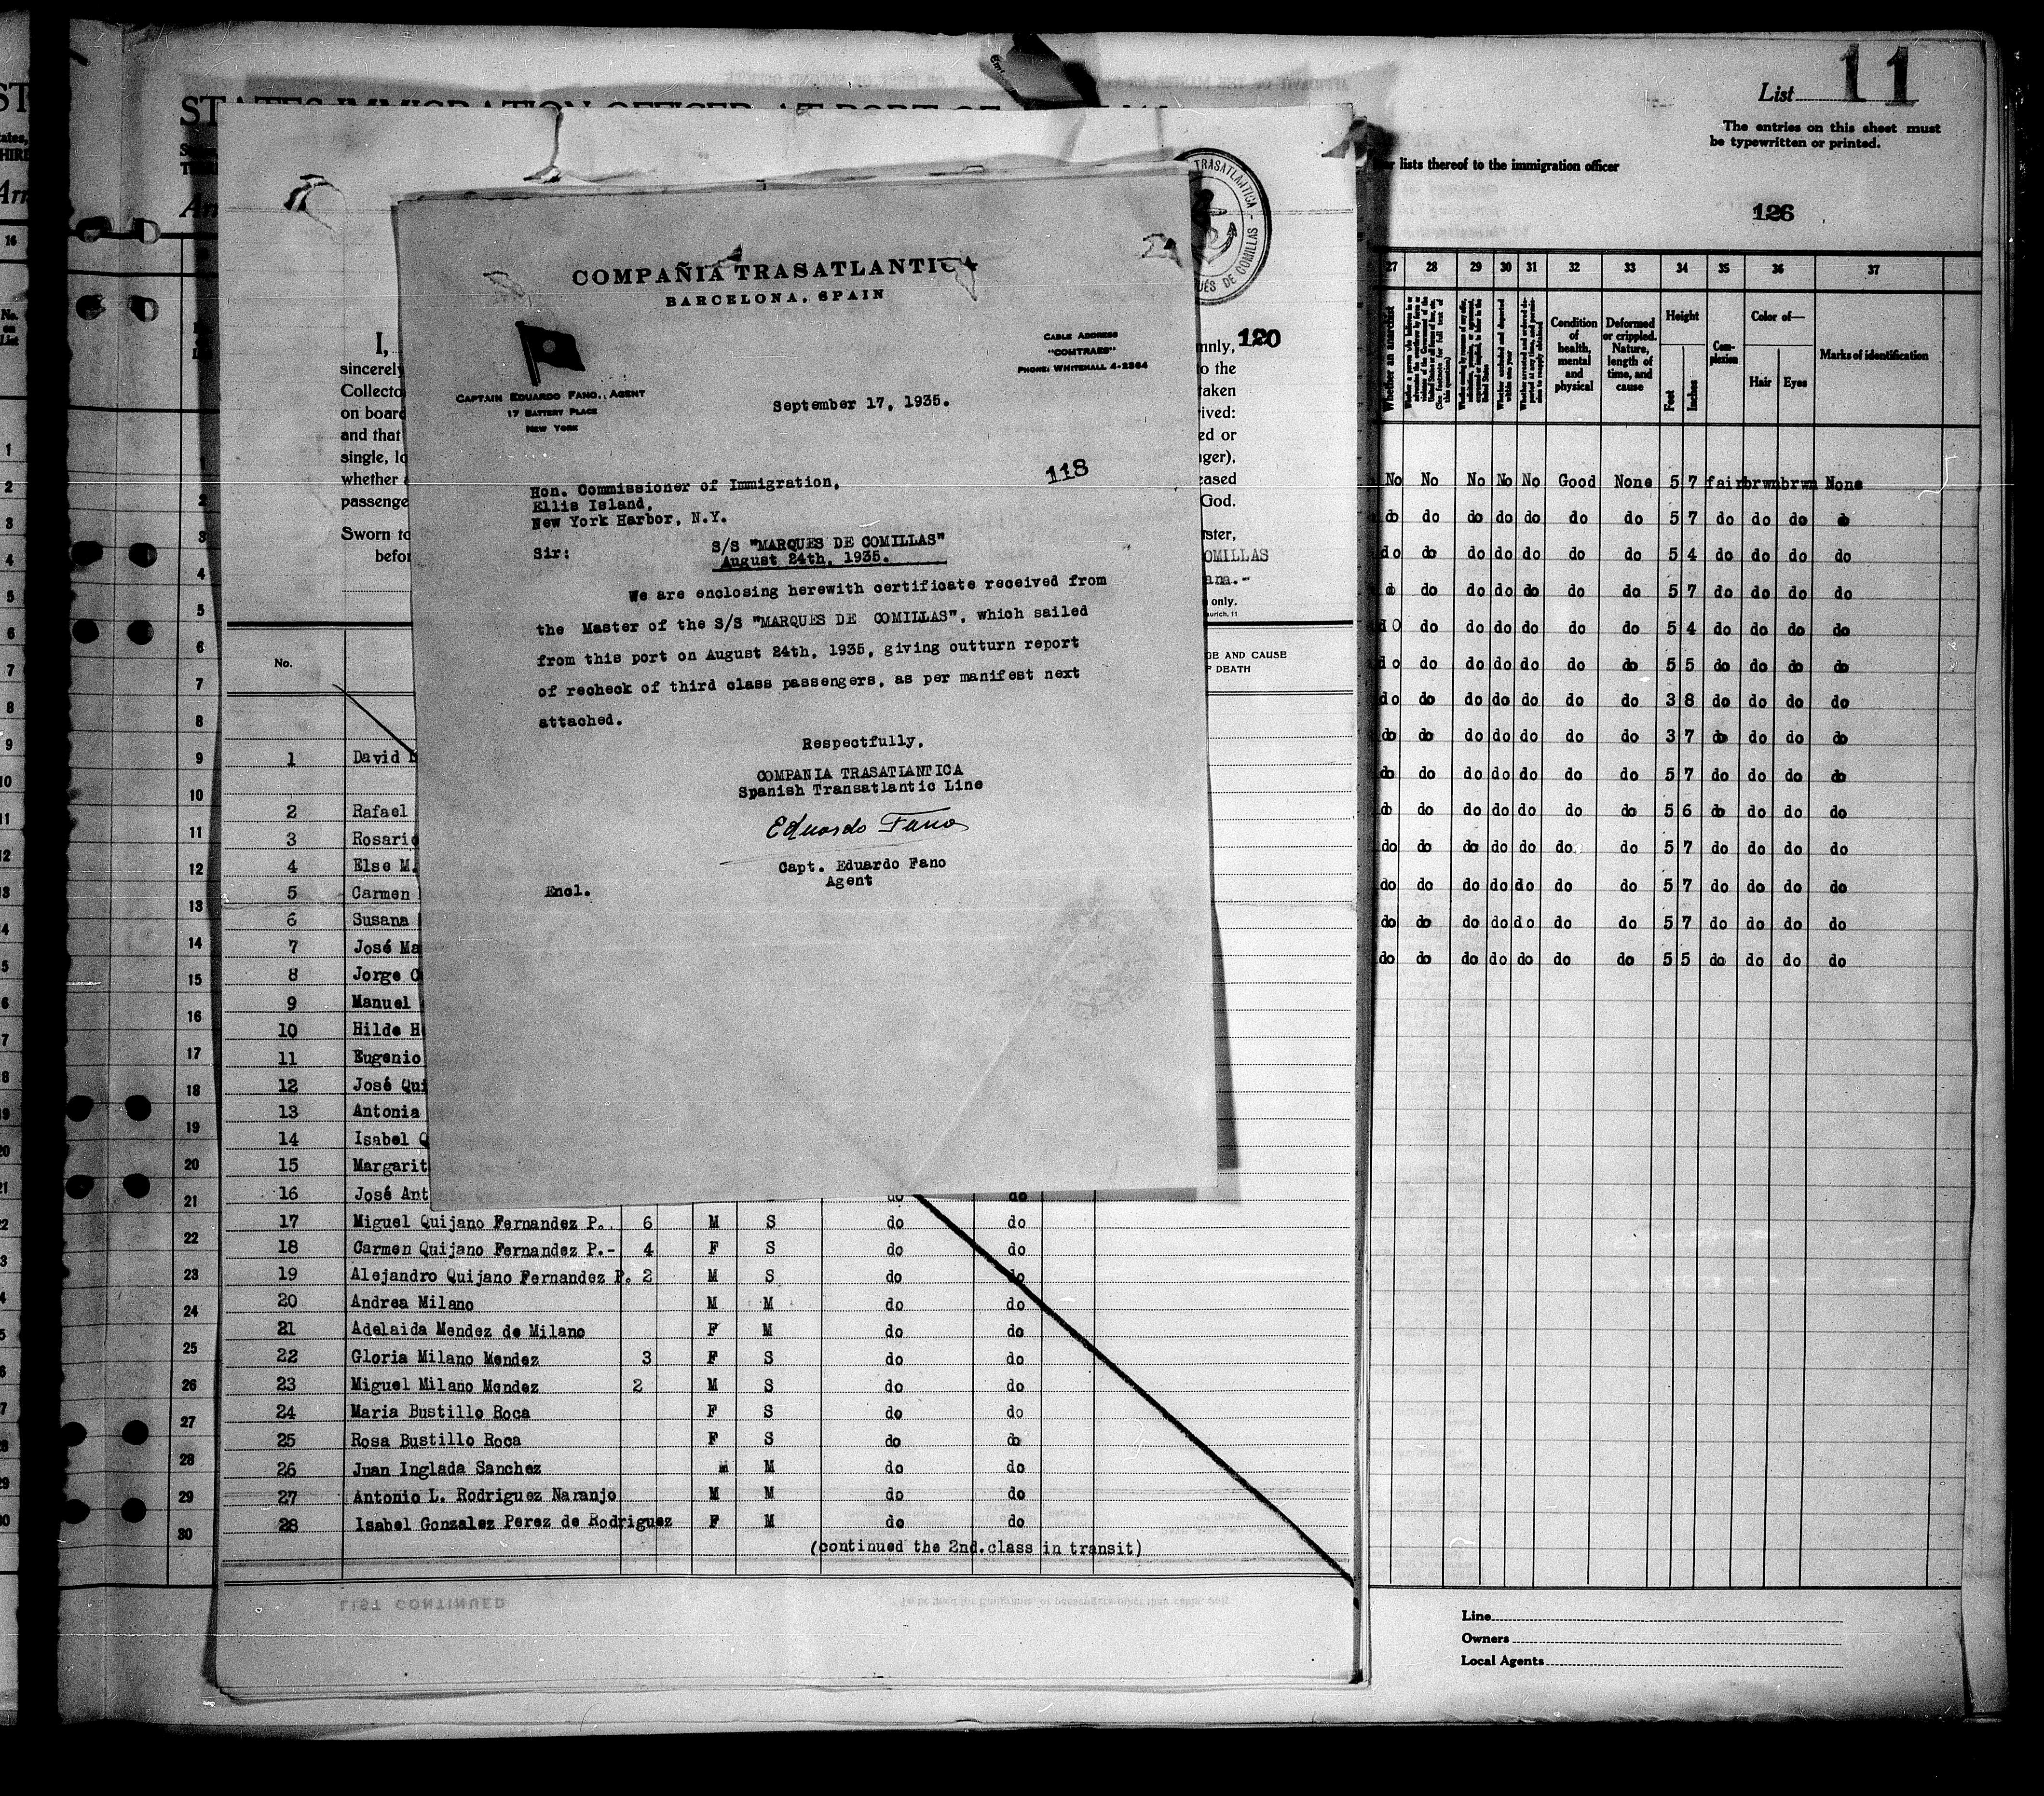 List 11
The entries on this sheet must
be typewritten or printed.
lists thereof to the immigration officer
126
COMPAÑIA TRASATLANTICA
BARCELONA, SPAIN
CABLE ADDRESS
"COMTRAES"
PHONE: WHITEHALL 4-2364
CAPTAIN EDUARDO FANO, AGENT
17 BATTERY PLACE
NEW YORK
September 17, 1935.
118
Hon. Commissioner of Immigration,
Ellis Island,
New York Harbor, N.Y.
Sir:
S/S "MARQUES DE COMILLAS"
August 24th, 1935.
We are enclosing herewith certificate received from
the Master of the S/S "MARQUES DE COMILLAS", which sailed
from this port on August 24th, 1935, giving outturn report
of recheck of third class passengers, as per manifest next
attached.
Respectfully,
COMPANIA TRASATLANTICA
Spanish Transatlantic Line
Eduardo Fano
Capt. Eduardo Fano
Agent
Encl.
TRASATLANTICA
DE COMILLAS
120
I,
sincerely
on board
and that
single,
whether
Sworn to
to the
taken
ed or
God.
OMILLAS
only.
No.
GE AND CAUSE
F DEATH
1 David
2 Rafael
3 Rosario
4 Else M.
5 Carmen
6 Susana
7 José Ma
8 Jorge
9 Manuel
10 Hilde
11 Eugenio
12 José Qui
13 Antonia
14 Isabel Q
15 Margarit
16 José Ant do do
17 Miguel Quijano Fernandez P. 6 M S do do
18 Carmen Quijano Fernandez P.- 4 F S do do
19 Alejandro Quijano Fernandez P. 2 M S do do
20 Andrea Milano M M do do
21 Adelaida Mendez de Milano F M do do
22 Gloria Milano Mendez 3 F S do do
23 Miguel Milano Mendez 2 M S do do
24 Maria Bustillo Roca F S do do
25 Rosa Bustillo Roca F S do do
26 Juan Inglada Sanchez M M do do
27 Antonio L. Rodriguez Naranjo M M do do
28 Isabel Gonzalez Perez de Rodriguez F M do do
(continued the 2nd.class in transit)
LIST CONTINUED
27 28 29 30 31 32 33 34 35 36 37
Whether an anarchist
Condition of health, mental and physical
Deformed or crippled. Nature, length of time, and cause
Height
Feet
Inches
Complexion
Color of—
Hair
Eyes
Marks of identification
No No No No No Good None 5 7 fair brwn brwn None
do do do do do do do 5 7 do do do do
do do do do do do do 5 4 do do do do
do do do do do do do 5 7 do do do do
do do do do do do do 5 4 do do do do
do do do do do do do 5 5 do do do do
do do do do do do do 3 8 do do do do
do do do do do do do 3 7 do do do do
do do do do do do do 5 7 do do do do
do do do do do do do 5 6 do do do do
do do do do do do do 5 7 do do do do
do do do do do do do 5 7 do do do do
do do do do do do do 5 7 do do do do
do do do do do do do 5 5 do do do do
Line
Owners
Local Agents